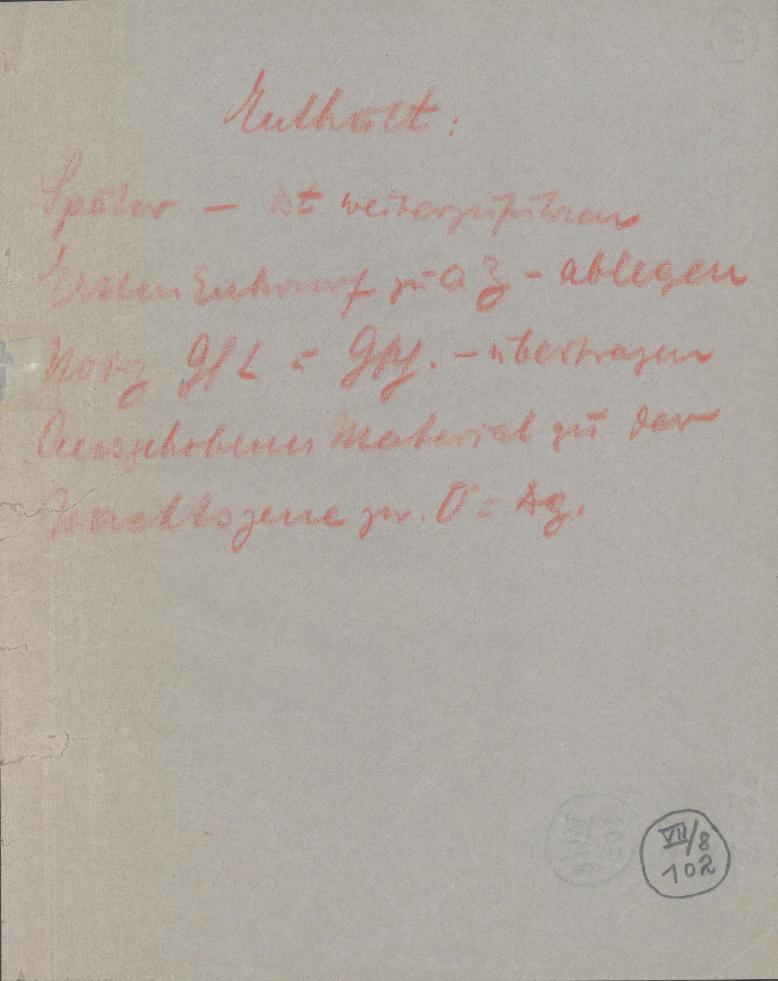 Enthält:
Später – ist weiterzuführen
Ersten Entwurf zu a Z – ablegen
Notiz Gf L = – übertragen
Ausgehobenes Material zu der
Nachtszene zw. U = Ag.
VII/8
102